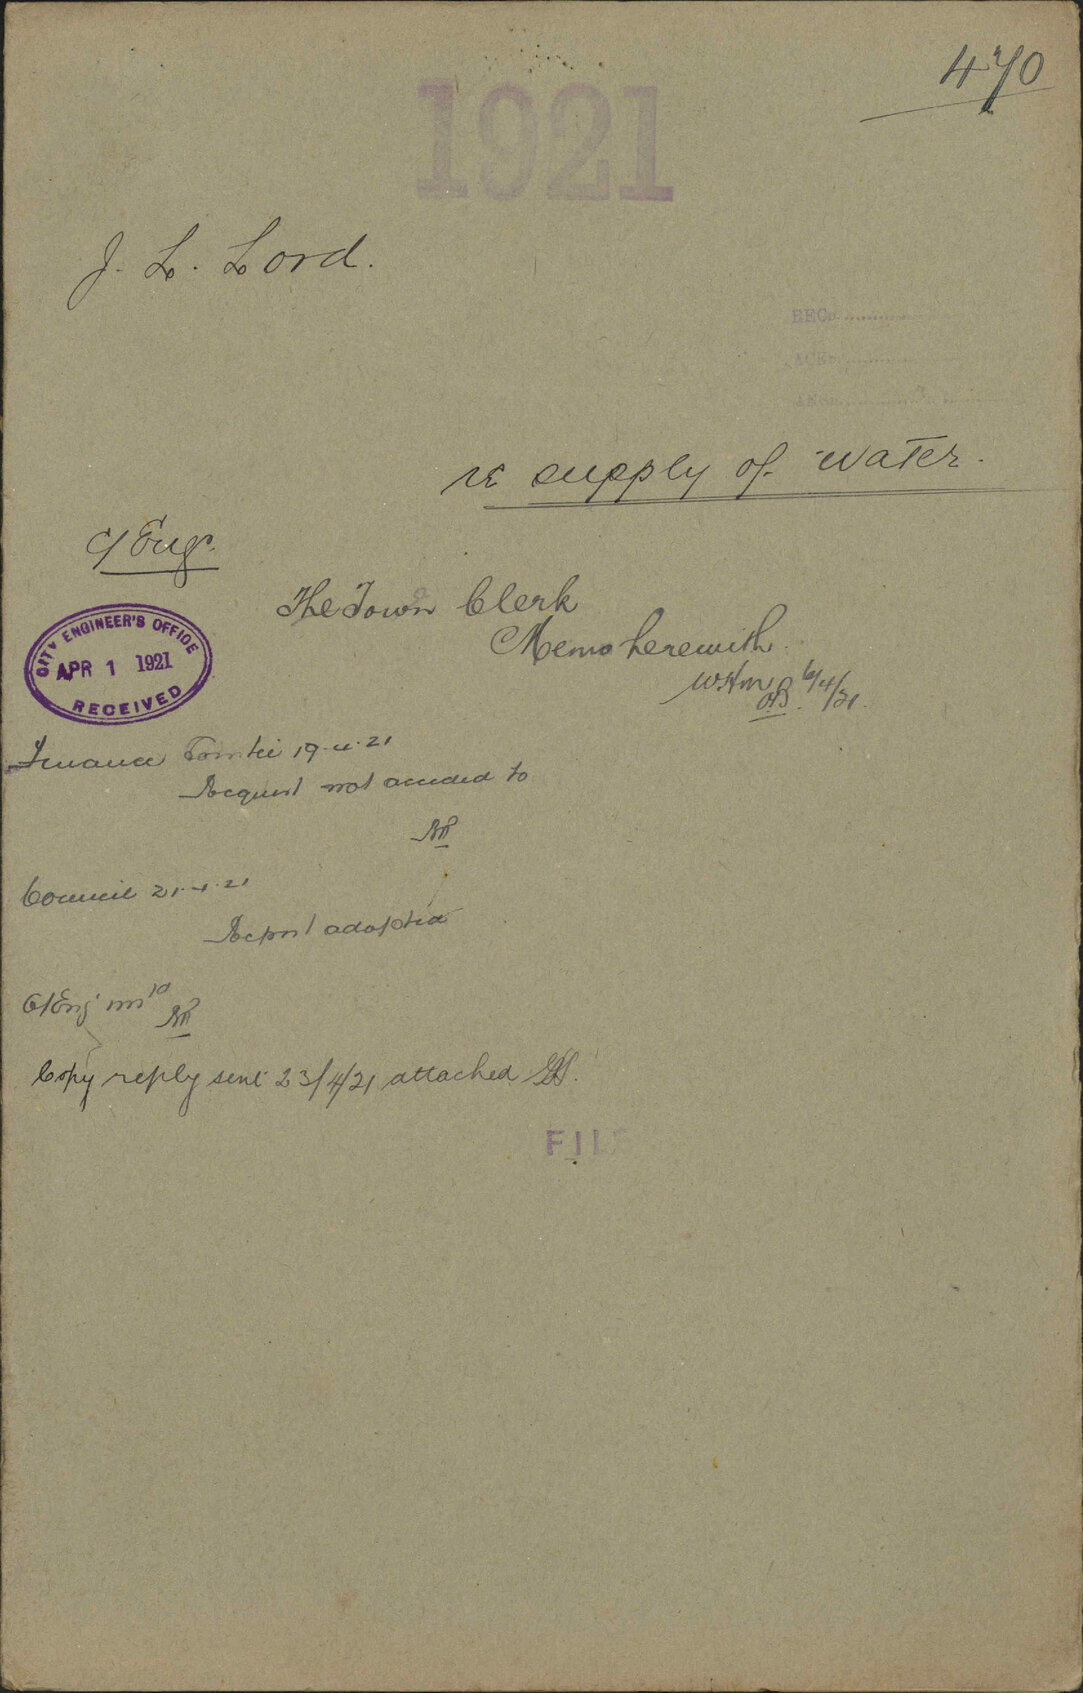 470
1921
J. L. Lord.
REC
ACK
re supply of water.
C/Engr.
The Town Clerk
Memo herewith.
6/4/21.
CITY ENGINEER'S OFFICE
APR 1 1921
RECEIVED
Finance Comtee 19.4.21
Request not acceded to
Council 21.4.21
Report adopted
C/Eng
Copy reply sent 23/4/21 attached
FILE